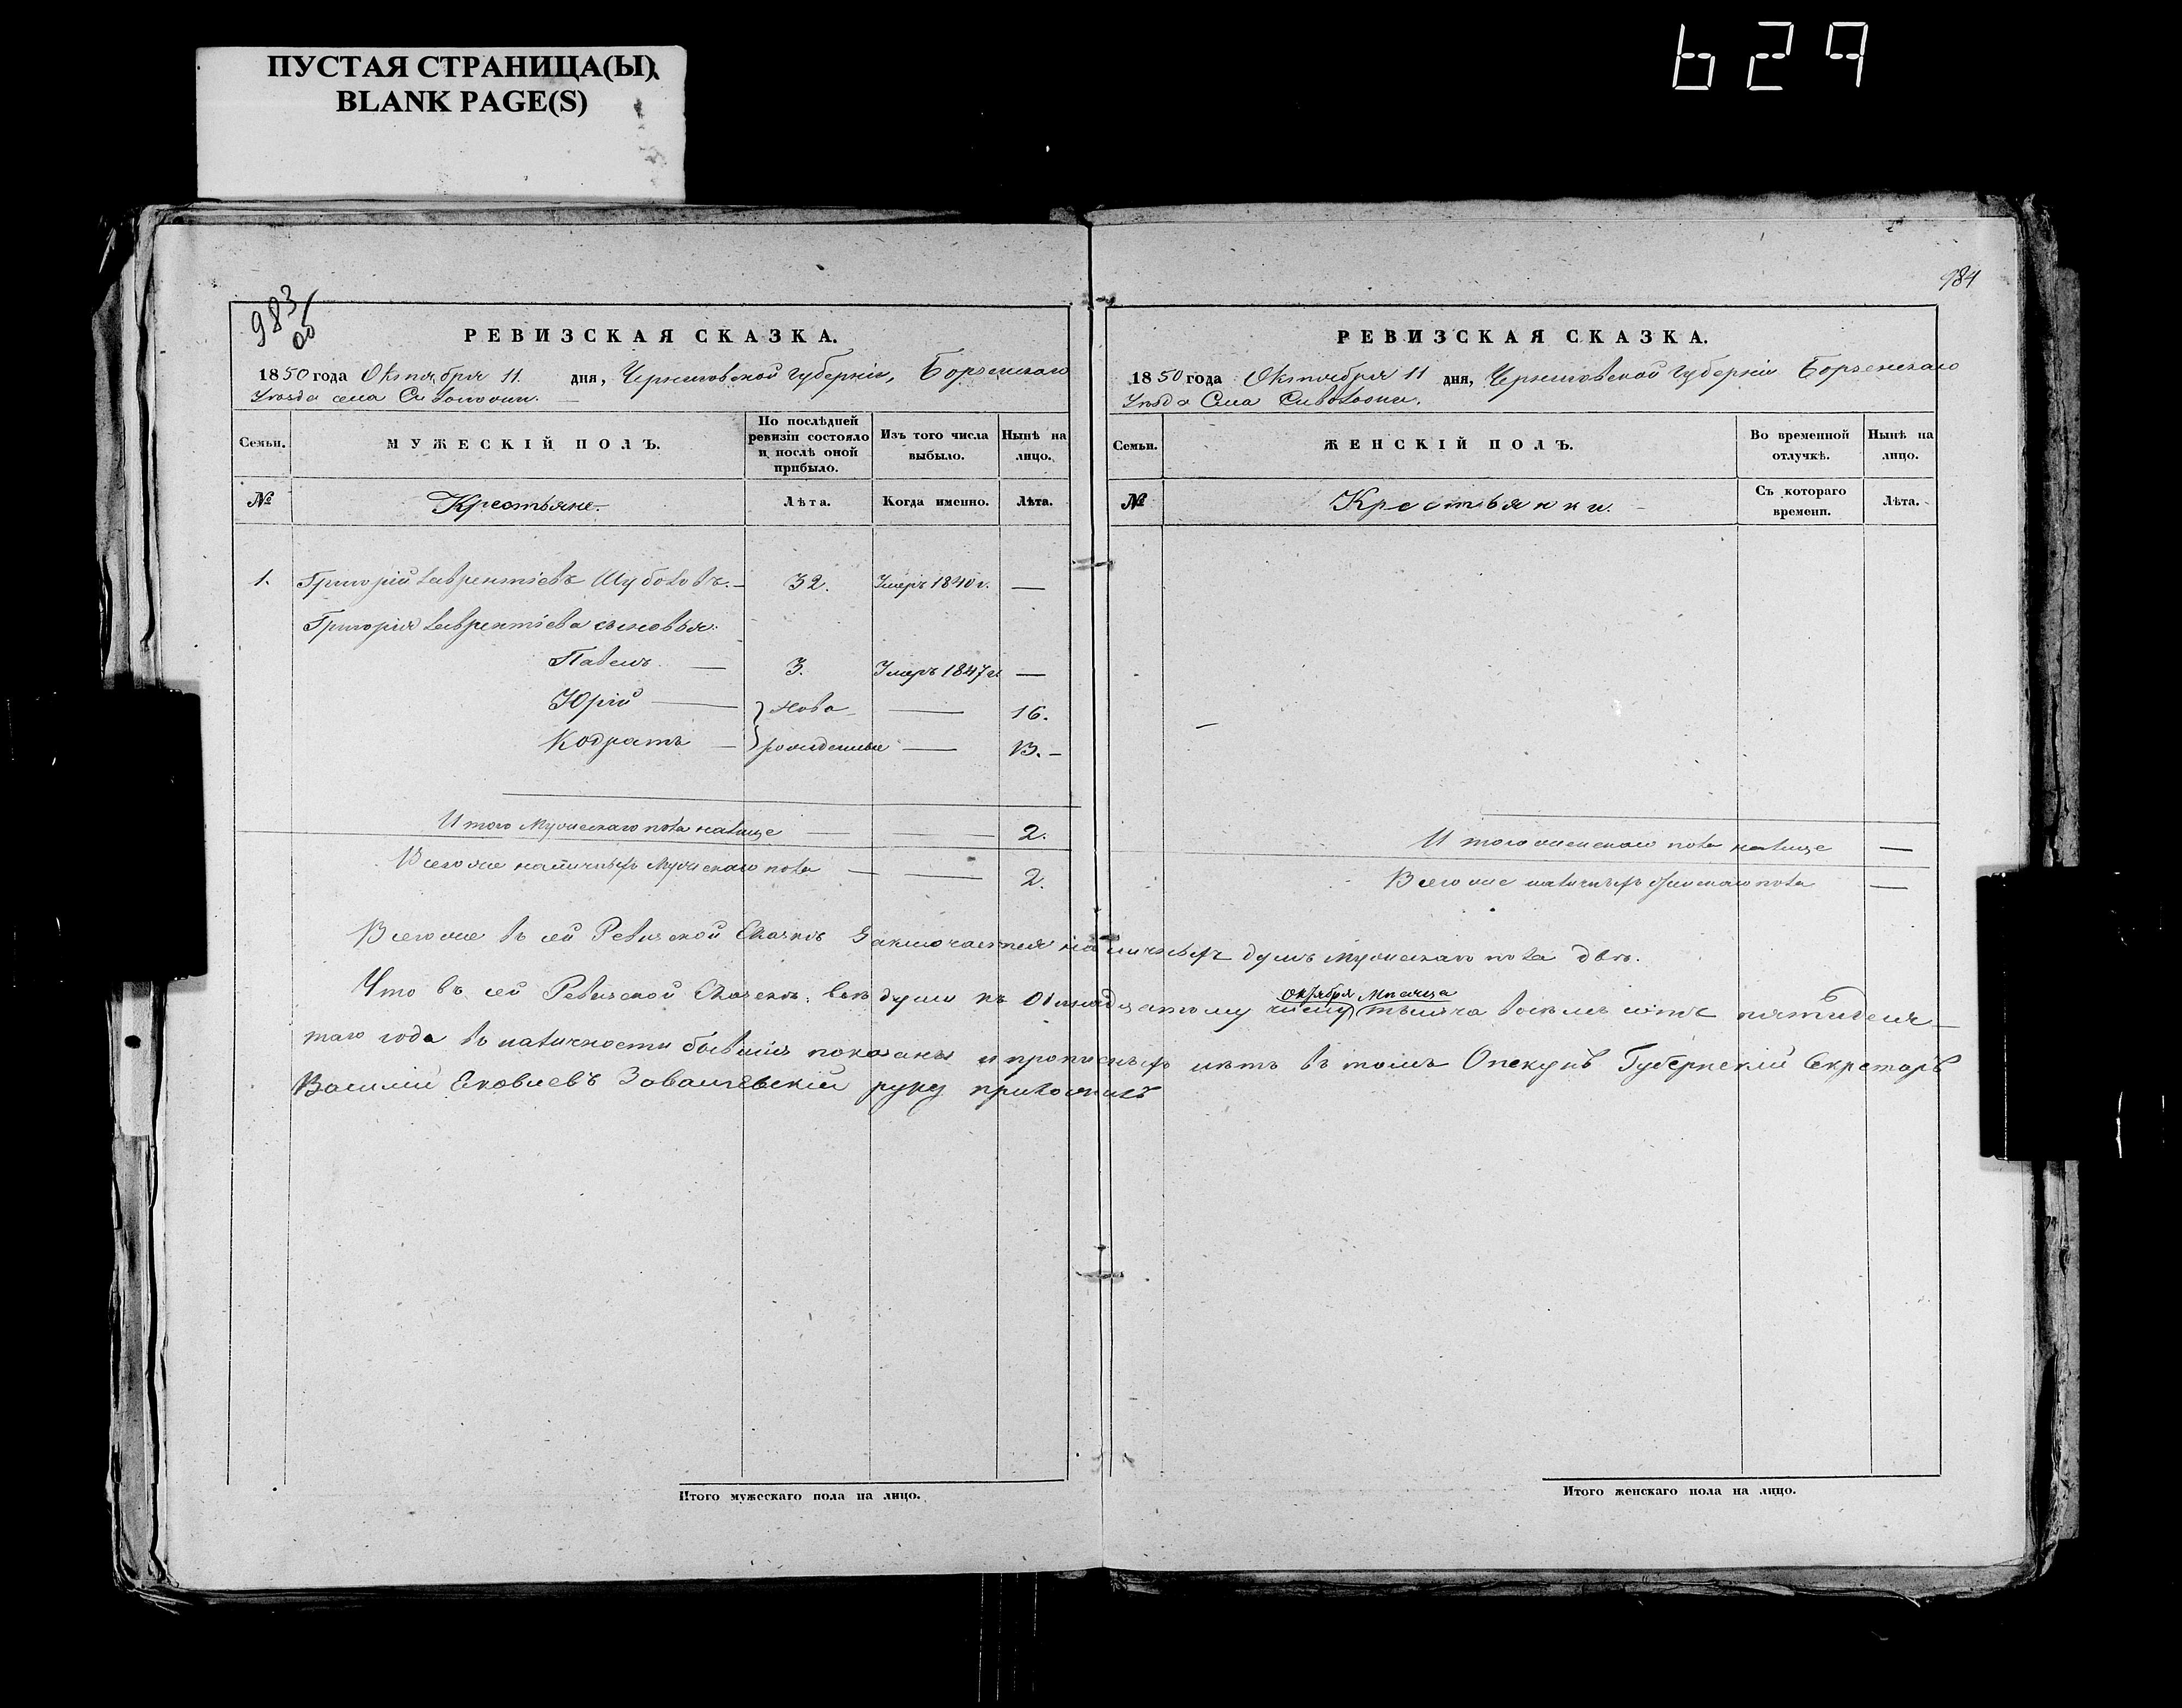 ПУСТАЯ СТРАНИЦА(Ы)
BLANK PAGE(S)
629
983
об
РЕВИЗСКАЯ СКАЗКА.
1850 года Октября 11. дня, Черниговской губерніи, Борзенскаго
Уѣзда села Сиволожи.
Семьи.
МУЖЕСКІЙ ПОЛЪ.
По послѣдней ревизіи состояло и послѣ оной прибыло.
Изъ того числа выбыло.
Нынѣ на лицо.
№
Крестьяне.
Лѣта.
Когда именно.
Лѣта.
1. Григорій Лаврентіевъ Шуболовъ.— 32. Умеръ 1840 г. —
Григорія Лаврентіева сыновья:
Павелъ — 3. Умеръ 1847 г. —
Юрій — Ново — 16.
Кодратъ — рожденные — 13. —
Итого Мужескаго пола налице — — 2.
Всего же наличныхъ Мужескаго пола — — 2.
984
РЕВИЗСКАЯ СКАЗКА.
1850 года Октября 11 дня, Черниговской Губерніи Борзенскаго
Уѣзда Села Сиволожи.
Семьи.
ЖЕНСКІЙ ПОЛЪ.
Во временной отлучкѣ.
Нынѣ на лицо.
№
Крестьянки.
Съ котораго времени.
Лѣта.
Итого женскаго пола налице —
Всего же наличныхъ женскаго пола —
Всего же въ сей Ревизской Сказкѣ заключается наличныхъ душъ мужескаго пола двѣ.
Что въ сей Ревизской Сказкѣ всѣ души къ Одинадцатому числу Октября Мѣсяца тысяча восемь сотъ пятидеся-
таго года въ наличности бывшія показаны и прописныхъ нѣтъ въ томъ Опекунъ Губернскій Секретарь
Василій Яковлевъ руку приложилъ
Итого мужескаго пола на лицо.
Итого женскаго пола на лицо.